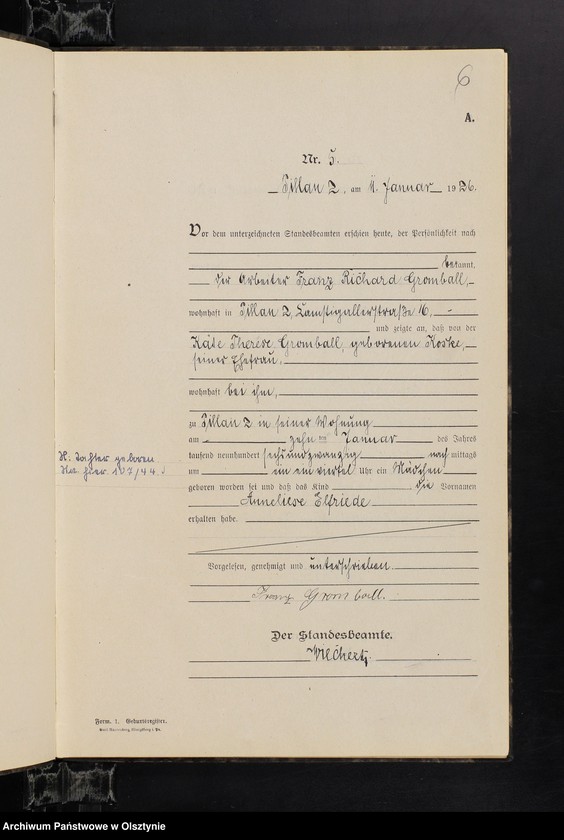 6
A.
Nr. 5.
Pillau 2, am 11. Januar 1926.
Vor dem unterzeichneten Standesbeamten erschien heute, der Persönlichkeit nach
bekannt,
der Arbeiter Franz Richard Gromball,
wohnhaft in Pillau 2, Camstigallerstraße 16,
und zeigte an, daß von der
Käte Therese Gromball, geborenen Koske,
seiner Ehefrau,
wohnhaft bei ihm,
zu Pillau 2 in seiner Wohnung
am zehnten Januar des Jahres
tausend neunhundert sechsundzwanzig nachmittags
um ein viertel Uhr ein Mädchen
geboren worden sei und daß das Kind die Vornamen
Anneliese Elfriede
erhalten habe.
Tochter geboren
hier 107/44.
Vorgelesen, genehmigt und unterschrieben.
Franz Gromball.
Der Standesbeamte.
Form. 1. Geburtsregister.
Archiwum Państwowe w Olsztynie